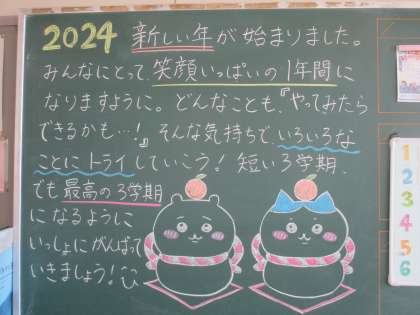 2024 新しい年が始まりました。
みんなにとって、笑顔いっぱいの1年間に
なりますように。どんなことも、『やってみたら
できるかも…!』そんな気持ちで、いろいろな
ことにトライしていこう!短い3学期、
でも最高の3学期
になるように
いっしょにがんばって
いきましょう!
1
2
3
4
5
6